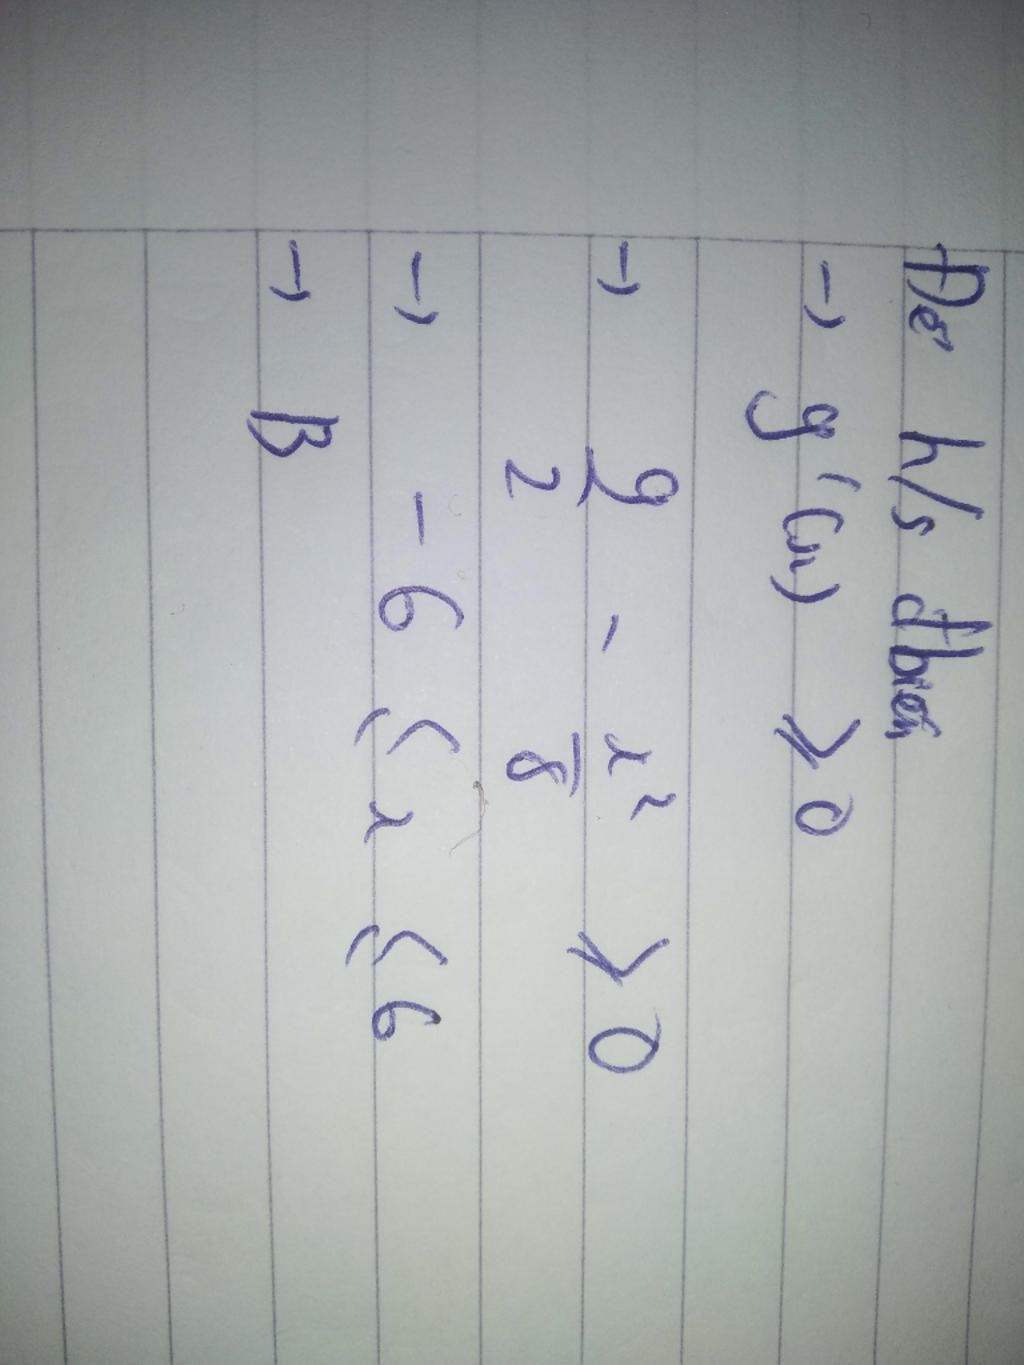 Để h/s đbiến
→ g'(x) ⩾ 0
→ 9/2 - x²/8 ⩾ 0
→ - 6 ⩽ x ⩽ 6
→ B